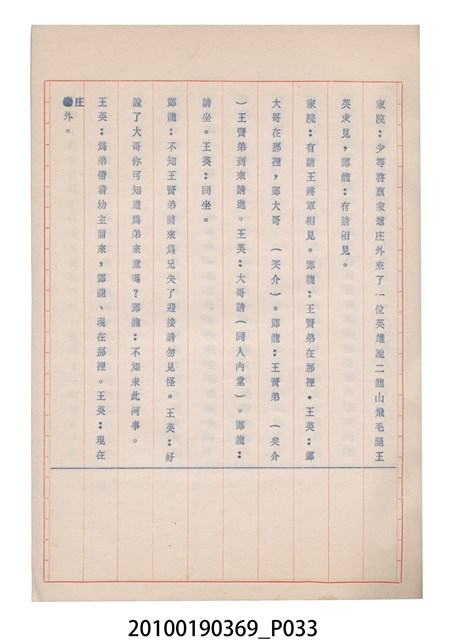 家院：少等啓禀家爺庄外來了一位英雄說二龍山飛毛腿王
英求見，鄧龍：有請相見。
家院：有請王將軍相見。鄧龍：王賢弟在那裡。王英：鄧
大哥在那裡，鄧大哥　（笑介）。鄧龍：王賢弟　（矣介
）王賢弟到來請進。王英：大哥請（同入內堂）。鄧龍：
請坐。王英：同坐。
鄧龍：不知王賢弟前來爲兄失了迎接請勿見怪。王英：好
說了大哥你可知道爲弟來意嗎？鄧龍：不知來此何事。
王英：爲弟帶着幼主前來，鄧龍、現在那裡。王英：現在
庄外。
20100190369_P033